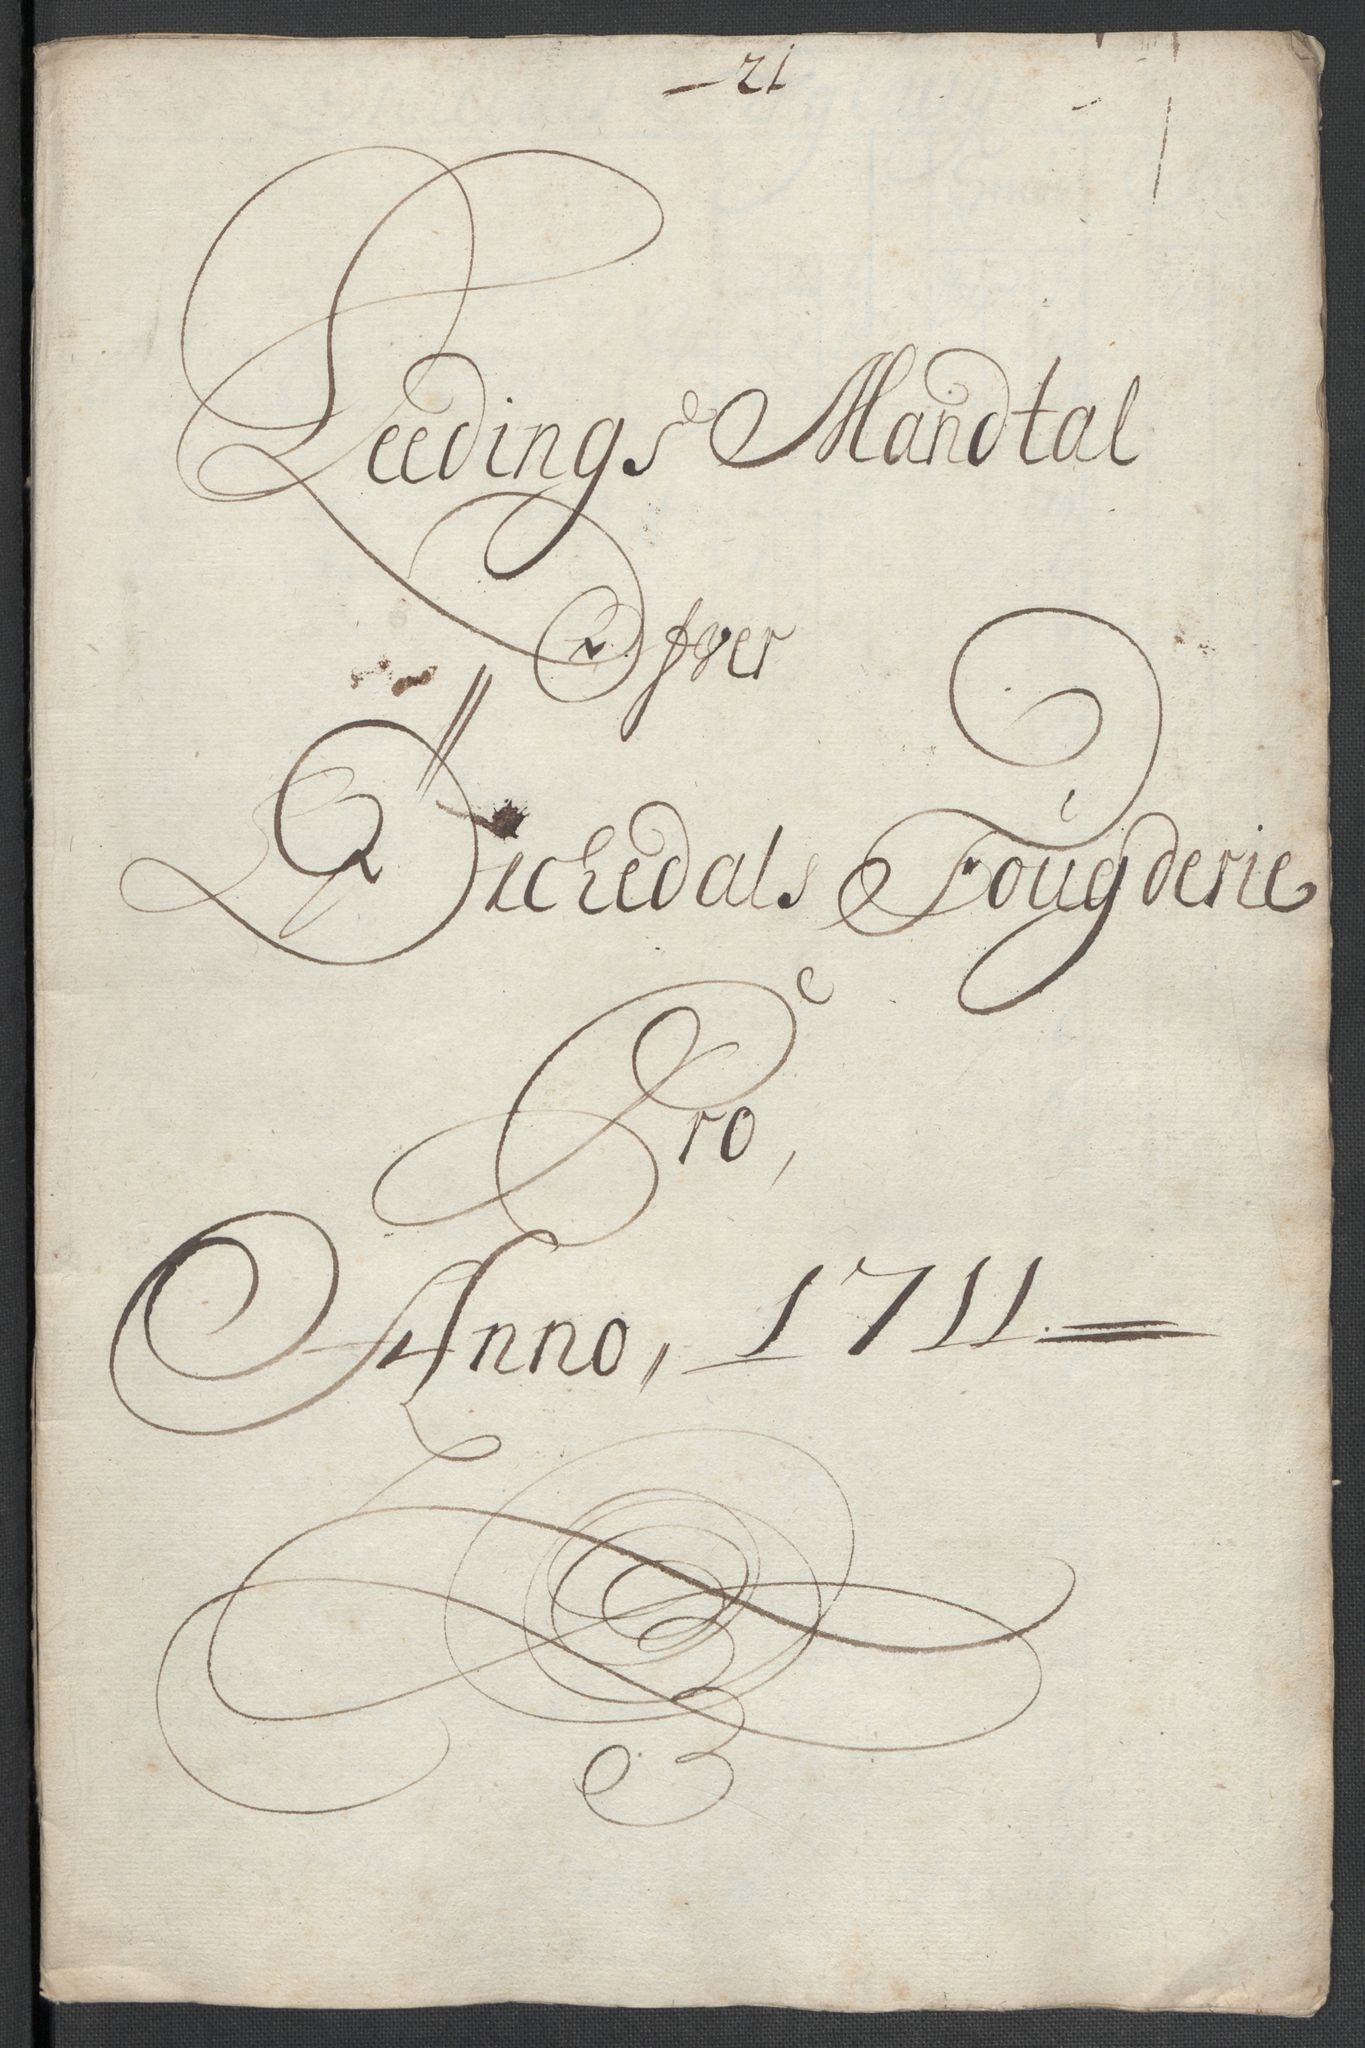 21
Leedings Mandtal
Ofver
Öschedals Fougderie
Pro,
Anno, 1711